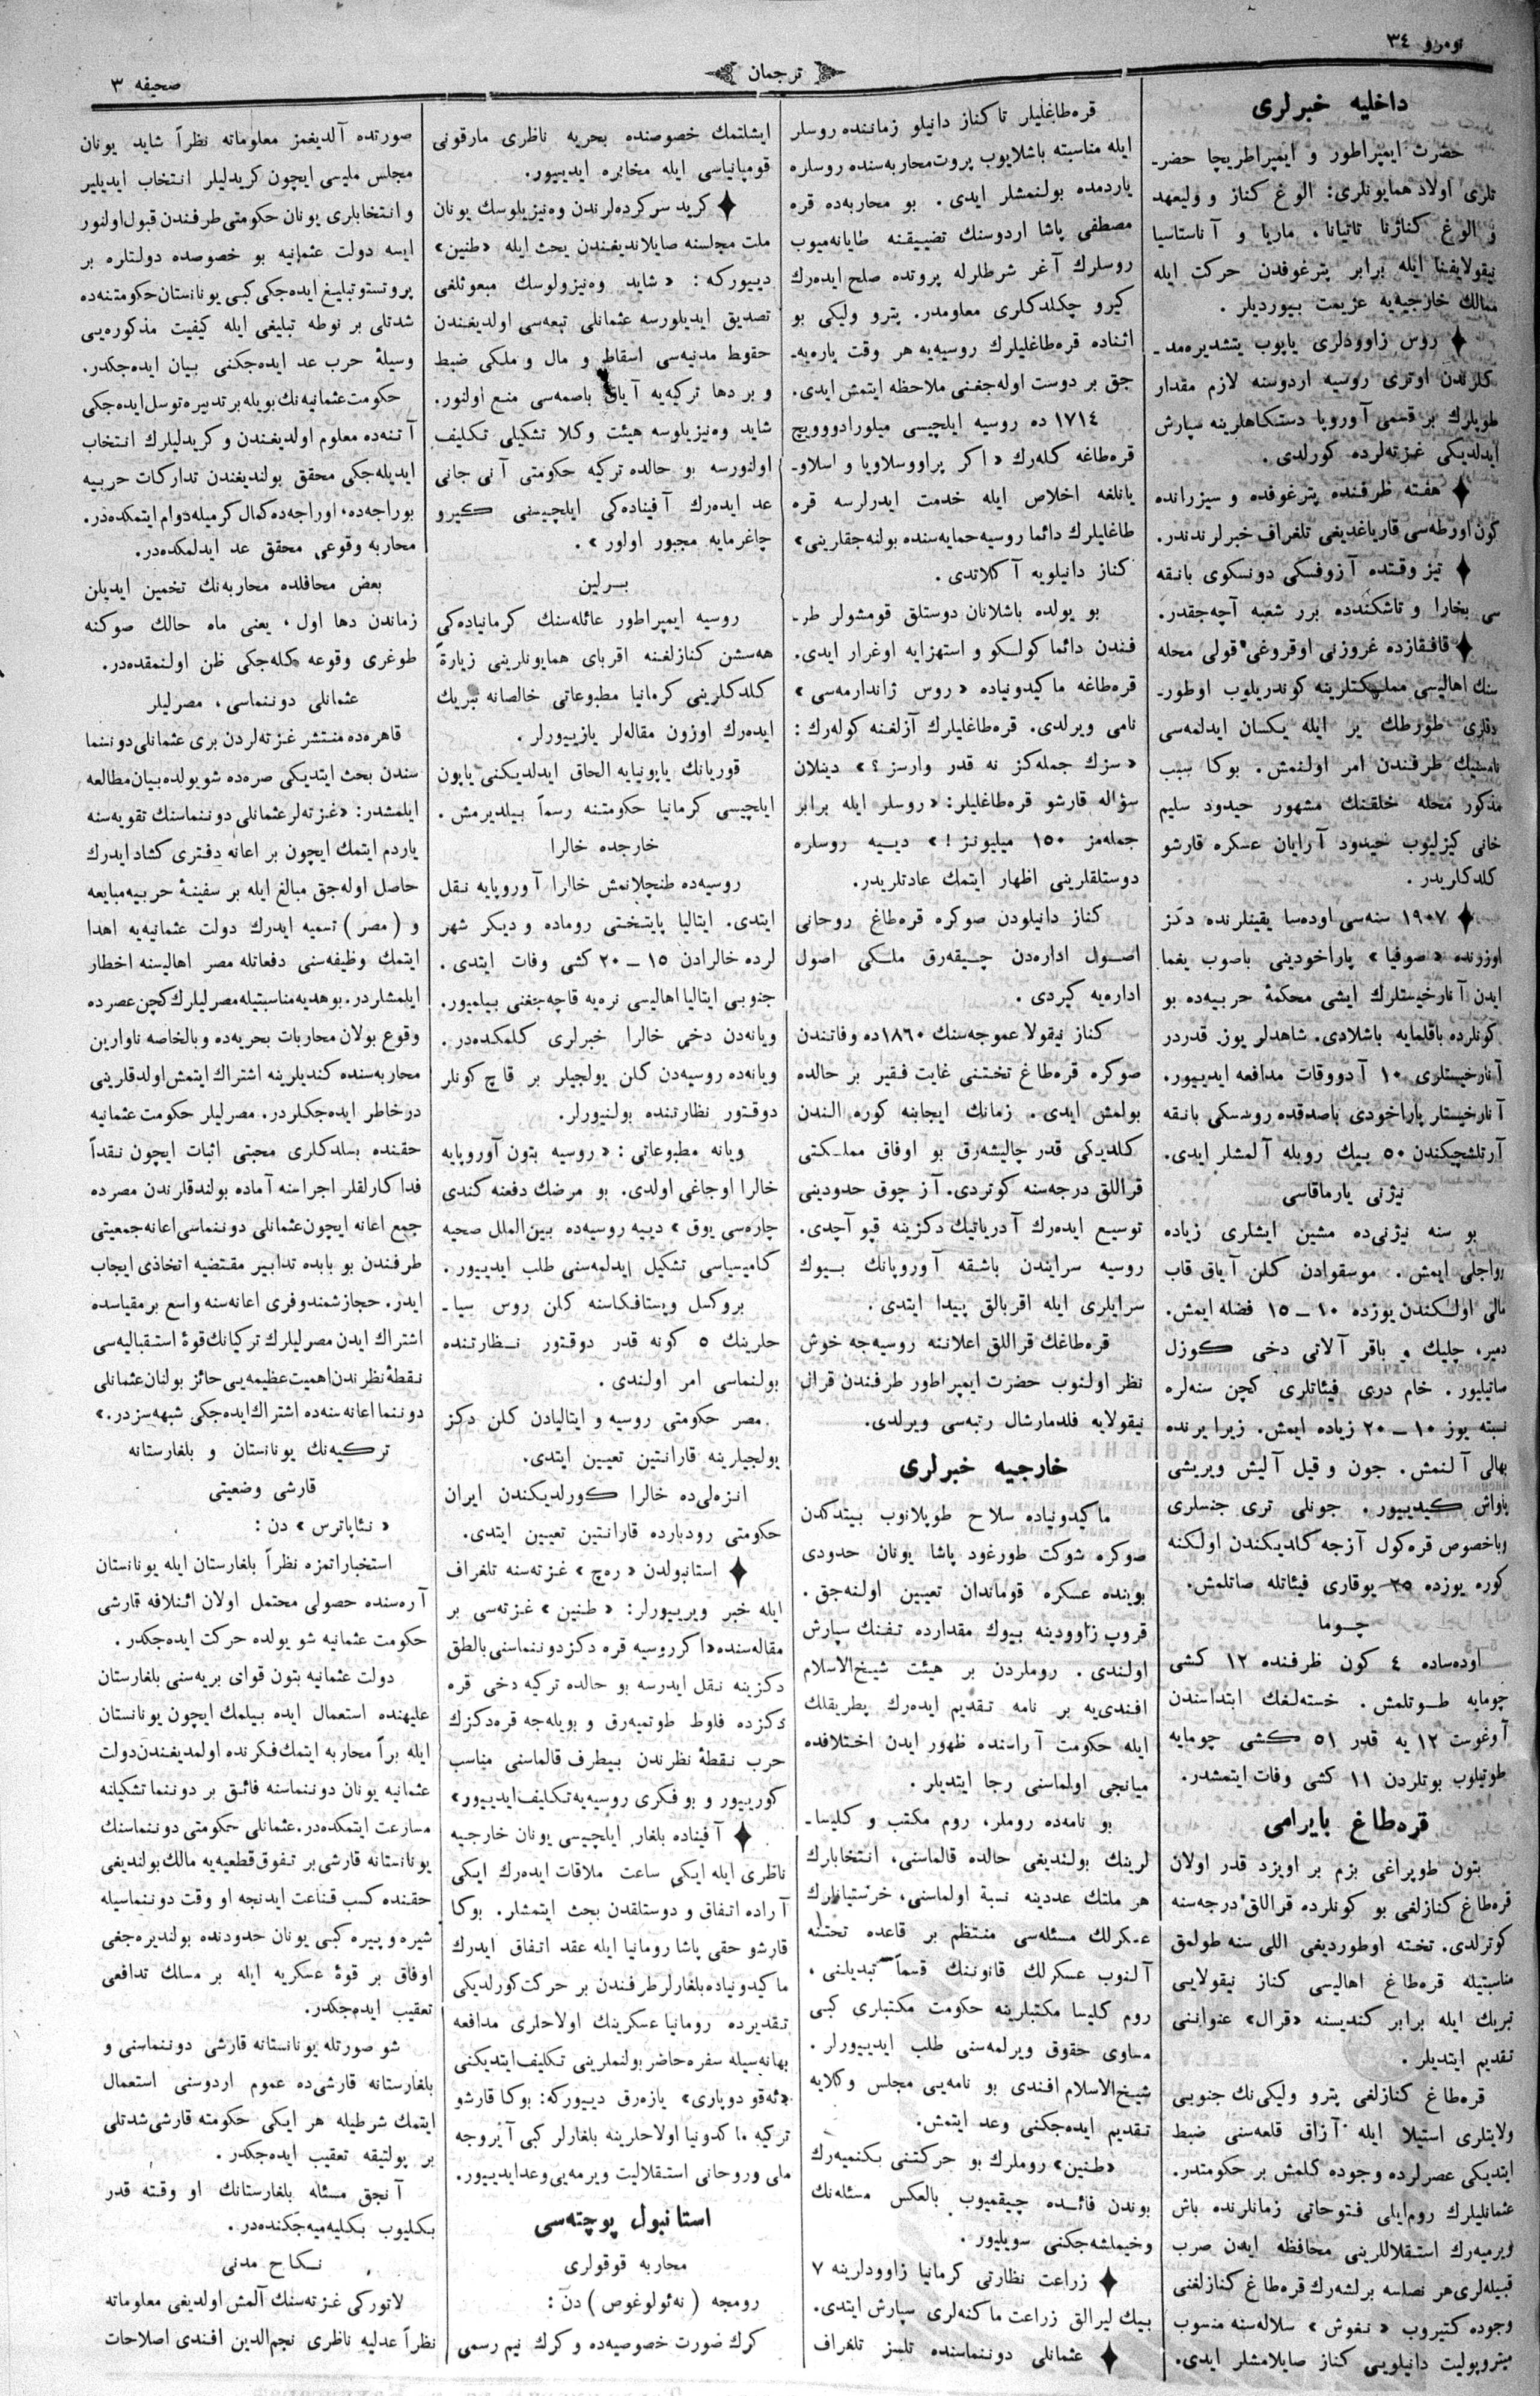 نومرو ٣٤
ترجمان
صحيفه ٣
داخليه خبرلری
حضرت ايمپراطور و ايمپراطريچا حضر-
تلری اولاد همايونلری: الوغ كناز و وليعهد
و الوغ كنازنا تاتيانا، ماريا و آناستاسيا
نيقولايفنا ايله برابر پترغوفدن حركت ايله
ممالك خارجيه‌يه عزيمت بيورديلر.
روس زاوودلری ياپوب يتشديره‌مد-
كلرندن اوتری روسيه اردوسنه لازم مقدار
طوپلرك بر قسمی آوروپا دستكاهلرينه سپارش
ايدلديكی غزته‌لرده كورلدی.
هفته ظرفنده پترغوفده و سيزرانده
كون اورطه‌سی قارياغديغی تلغراف خبرلرندندر.
تيز وقتده آزوفسكی دونسكوی بانقه
سی بخارا و تاشكندده برر شعبه آچه‌جقدر.
قافقازده غروزنی اوقروغی قولی محله
سنك اهاليسی مملكتلرينه كوندريلوب اوطور-
دقلری طورطك ير ايله يكسان ايدلمه‌سی
نامستنيك طرفندن امر اولنمش. بوكا سبب
مذكور محله خلقنك مشهور حيدود سليم
خانی كيزليوب حيدود آرايان عسكره قارشو
كلدكلريدر.
١٩٠٧ سنه‌سی اوده‌سا يقينلرنده دكز
اوزرنده «صوفيا» پاراخودينی باصوب يغما
ايدن آنارخيستلرك ايشی محكمهٔ حربيه‌ده بو
كونلرده باقلمايه باشلادی. شاهدلر يوز قدردر
آنارخيستلری ١٠ آدووقات مدافعه ايدييور.
آنارخيستلر پاراخودی باصدقده روسسكی بانقه
آرتلشچيكندن ٥٠ بيك روبله آلمشلر ايدی.
نيژنی يارماقاسی
بو سنه نيژنی‌ده مشين ايشلری زياده
رواجلی ايمش. موسقوادن كلن آياق قاب
مالی اولكندن يوزده ١٠ — ١٥ فضله ايمش.
دمير، چليك و باقر آلاتی دخی كوزل
صاتيليور. خام دری فيئاتلری كچن سنه‌لره
نسبته يوز ١٠ — ٢٠ زياده ايمش. زيرا يرنده
بهالی آلنمش. جون و قيل آليش ويريشی
ياواش كيدييور. جونلی تری جنسلری
وباخصوص قره‌كول آزجه كلديكندن اولكنه
كوره يوزده ٢٥ يوقاری فيئاتله صاتلمش.
چوما
اوده‌ساده ٤ كون ظرفنده ١٢ كشی
چومايه طوتلمش. خسته‌لغك ابتداسندن
آوغوست ١٢ يه قدر ٥١ كشی چومايه
طوتيلوب بوتلردن ١١ كشی وفات ايتمشدر.
قره‌طاغ بايرامی
بتون طوپراغی بزم بر اويزد قدر اولان
قره‌طاغ كنازلغی بو كونلرده قراللق درجه‌سنه
كوترلدی. تخته اوطورديغی اللی سنه طولمق
مناسبتيله قره‌طاغ اهاليسی كناز نيقولايی
تبريك ايله برابر كنديسنه «قرال» عنواننی
تقديم ايتديلر.
قره‌طاغ كنازلغی پترو وليكی‌نك جنوبی
ولايتلری استيلا ايله آزاق قلعه‌سنی ضبط
ايتديكی عصرلرده وجوده كلمش بر حكومتدر.
عثمانليلرك روم‌ايلی فتوحاتی زمانلرنده باش
ويرميه‌رك استقلاللرينی محافظه ايدن صرب
قبيله‌لری هر نصلسه برلشه‌رك قره‌طاغ كنازلغنی
وجوده كتيروب «نغوش» سلاله‌سنه منسوب
ميتروپوليت دانيلويی كناز صايلامشلر ايدی.
قره‌طاغليلر تا كناز دانيلو زماننده روسلر
ايله مناسبته باشلايوب پروت محاربه‌سنده روسلره
ياردمده بولنمشلر ايدی. بو محاربه‌ده قره
مصطفی پاشا اردوسنك تضييقنه طايانه‌ميوب
روسلرك آغر شرطلرله پروتده صلح ايده‌رك
كيرو چكلدكلری معلومدر. پترو وليكی بو
اثناده قره‌طاغليلرك روسيه‌يه هر وقت ياره‌يه-
جق بر دوست اوله‌جغنی ملاحظه ايتمش ايدی.
١٧١٤ ده روسيه ايلچيسی ميلورادوويچ
قره‌طاغه كله‌رك «اكر پراووسلاويا و اسلاو-
يانلغه اخلاص ايله خدمت ايدرلرسه قره
طاغليلرك دائما روسيه حمايه‌سنده بولنه‌جقلرينی»
كناز دانيلويه آكلاتدی.
بو يولده باشلانان دوستلق قومشولر طر-
فندن دائما كولكو و استهزايه اوغرار ايدی.
قره‌طاغه ماكيدونياده «روس ژاندارمه‌سی»
نامی ويرلدی. قره‌طاغليلرك آزلغنه كوله‌رك:
«سزك جمله‌كز نه قدر وارسز؟» دينلان
سؤاله قارشو قره‌طاغليلر: «روسلر ايله برابر
جمله‌مز ١٥٠ ميليونز!» دييه روسلره
دوستلقلرينی اظهار ايتمك عادتلريدر.
كناز دانيلودن صوكره قره‌طاغ روحانی
اصول اداره‌دن چيقه‌رق ملكی اصول
اداره‌يه كيردی.
كناز نيقولا عموجه‌سنك ١٨٦٠ ده وفاتندن
صوكره قره‌طاغ تختنی غايت فقير بر حالده
بولمش ايدی. زمانك ايجابنه كوره الندن
كلديكی قدر چاليشه‌رق بو اوفاق مملكتی
قراللق درجه‌سنه كوتردی. آز چوق حدودينی
توسيع ايده‌رك آدرياتيك دكزينه قپو آچدی.
روسيه سرايندن باشقه آوروپانك بيوك
سرايلری ايله اقربالق پيدا ايتدی.
قره‌طاغك قراللق اعلاننه روسيه‌جه خوش
نظر اولنوب حضرت ايمپراطور طرفندن قرال
نيقولايه فلدمارشال رتبه‌سی ويرلدی.
خارجيه خبرلری
ماكيدونياده سلاح طوپلانوب بيتدكدن
صوكره شوكت طورغود پاشا يونان حدودی
بوينده عسكره قوماندان تعيين اولنه‌جق.
قروپ زاوودينه بيوك مقدارده تفنك سپارش
اولندی. روملردن بر هيئت شيخ‌الاسلام
افندی‌يه بر نامه تقديم ايده‌رك پطريقلك
ايله حكومت آراسنده ظهور ايدن اختلافده
ميانجی اولماسنی رجا ايتديلر.
بو نامه‌ده روملر، روم مكتب و كليسا-
لرينك بولنديغی حالده قالماسنی، انتخابلرك
هر ملتك عددينه نسبة اولماسنی، خرستيانلرك
عسكرلك مسئله‌سی منتظم بر قاعده تحتنه
آلنوب عسكرلك قانوننك قسماً تبديلنی،
روم كليسا مكتبلرينه حكومت مكتبلری كبی
مساوی حقوق ويرلمه‌سنی طلب ايدييورلر.
شيخ‌الاسلام افندی بو نامه‌يی مجلس وكلايه
تقديم ايده‌جكنی وعد ايتمش.
«طنين» روملرك بو حركتنی بكنميه‌رك
بوندن فائده چيقميوب بالعكس مسئله‌نك
وخيملشه‌جكنی سويليور.
زراعت نظارتی كرمانيا زاوودلرينه ٧
بيك ليرالق زراعت ماكنه‌لری سپارش ايتدی.
عثمانلی دوننماسنده تلسز تلغراف
ايشلتمك خصوصنده بحريه ناظری مارقونی
قومپانياسی ايله مخابره ايدييور.
كريد سركرده‌لرندن وه‌نيزيلوسك يونان
ملت مجلسنه صايلانديغندن بحث ايله «طنين»
دييوركه: «شايد وه‌نيزولوسك مبعوثلغی
تصديق ايديلورسه عثمانلی تبعه‌سی اولديغندن
حقوق مدنيه‌سی اسقاط و مال و ملكی ضبط
و بر دها تركيه‌يه آياق باصمه‌سی منع اولنور.
شايد وه‌نيزيلوسه هيئت وكلا تشكيلی تكليف
اولنورسه بو حالده تركيه حكومتی آنی جانی
عد ايده‌رك آفيناده‌كی ايلچيسنی كيرو
چاغرمايه مجبور اولور».
برلين
روسيه ايمپراطور عائله‌سنك كرمانياده‌كی
هه‌سسن كنازلغنه اقربای همايونلرينی زيارةً
كلدكلرينی كرمانيا مطبوعاتی خالصانه تبريك
ايده‌رك اوزون مقاله‌لر يازييورلر.
قوريانك ياپونيايه الحاق ايدلديكنی ياپون
ايلچيسی كرمانيا حكومتنه رسماً بيلديرمش.
خارجده خالرا
روسيه‌ده طنچلانمش خالرا آوروپايه نقل
ايتدی. ايتاليا پايتختی روماده و ديكر شهر
لرده خالرادن ١٥ — ٢٠ كشی وفات ايتدی.
جنوبی ايتاليا اهاليسی نره‌يه قاچه‌جغنی بيلميور.
ويانه‌دن دخی خالرا خبرلری كلمكده‌در.
ويانه‌ده روسيه‌دن كلن يولجيلر بر قاچ كونلر
دوقتور نظارتنده بولنيورلر.
ويانه مطبوعاتی: «روسيه بتون آوروپايه
خالرا اوجاغی اولدی. بو مرضك دفعنه كندی
چاره‌سی يوق» دييه روسيه‌ده بين‌الملل صحيه
كاميسياسی تشكيل ايدلمه‌سنی طلب ايدييور.
بروكسل ويستافكاسنه كلن روس سيا-
حلرينك ٥ كونه قدر دوقتور نظارتنده
بولنماسی امر اولندی.
مصر حكومتی روسيه و ايتاليادن كلن دكز
يولجيلرينه قارانتين تعيين ايتدی.
انزه‌لی‌ده خالرا كورلديكندن ايران
حكومتی رودبارده قارانتين تعيين ايتدی.
استانبولدن «ره‌چ» غزته‌سنه تلغراف
ايله خبر ويرييورلر: «طنين» غزته‌سی بر
مقاله‌سنده «اكر روسيه قره دكز دوننماسنی بالطق
دكزينه نقل ايدرسه بو حالده تركيه دخی قره
دكزده فلوط طوتميه‌رق و بويله‌جه قره‌دكزك
حرب نقطهٔ نظرندن بيطرف قالماسنی مناسب
كورييور و بو فكری روسيه‌يه تكليف ايدييور»
آفيناده بلغار ايلچيسی يونان خارجيه
ناظری ايله ايكی ساعت ملاقات ايده‌رك ايكی
آراده اتفاق و دوستلقدن بحث ايتمشلر. بوكا
قارشو حقی پاشا رومانيا ايله عقد اتفاق ايدرك
ماكيدونياده بلغارلر طرفندن بر حركت كورلديكی
تقديرده رومانيا عسكرينك اولاحلری مدافعه
بهانه‌سيله سفره حاضر بولنملرينی تكليف ايتديكنی
«ئه‌قو دوپاری» يازه‌رق دييوركه: بوكا قارشو
تركيه ماكدونيا اولاحلرينه بلغارلر كبی آيروجه
ملی وروحانی استقلاليت ويرمه‌يی وعد ايدييور.
استانبول پوچته‌سی
محاربه قوقولری
رومجه (نه‌ئولوغوص) دن:
كرك صورت خصوصيه‌ده و كرك نيم رسمی
صورتده آلديغمز معلوماته نظراً شايد يونان
مجلس مليسی ايچون كريدليلر انتخاب ايديلير
و انتخابلری يونان حكومتی طرفندن قبول اولنور
ايسه دولت عثمانيه بو خصوصده دولتلره بر
پروتستو تبليغ ايده‌جكی كبی يونانستان حكومتنه‌ده
شدتلی بر نوطه تبليغی ايله كيفيت مذكوره‌يی
وسيلهٔ حرب عد ايده‌جكنی بيان ايده‌جكدر.
حكومت عثمانيه‌نك بويله بر تدبيره توسل ايده‌جكی
آتنه‌ده معلوم اولديغندن و كريدليلرك انتخاب
ايديله‌جكی محقق بولنديغندن تداركات حربيه
بوراجه‌ده، اوراجه‌ده كمال كرمیله دوام ايتمكده‌در.
محاربه وقوعی محقق عد ايدلمكده‌در.
بعض محافلده محاربه‌نك تخمين ايديلن
زماندن دها اول، يعنی ماه حالك صوكنه
طوغری وقوعه كله‌جكی ظن اولنمقده‌در.
عثمانلی دوننماسی، مصرليلر
قاهره‌ده منتشر غزته‌لردن بری عثمانلی دوننما
سندن بحث ايتديكی صره‌ده شو يولده بيان مطالعه
ايلمشدر: «غزته‌لر عثمانلی دوننماسنك تقويه‌سنه
ياردم ايتمك ايچون بر اعانه دفتری كشاد ايدرك
حاصل اوله‌جق مبالغ ايله بر سفينهٔ حربيه مبايعه
و (مصر) تسميه ايدرك دولت عثمانيه‌يه اهدا
ايتمك وظيفه‌سنی دفعاتله مصر اهاليسنه اخطار
ايلمشلردر. بو هديه مناسبتيله مصرليلرك كچن عصرده
وقوع بولان محاربات بحريه‌ده و بالخاصه ناوارين
محاربه‌سنده كنديلرينه اشتراك ايتمش اولدقلرينی
درخاطر ايده‌جكلردر. مصرليلر حكومت عثمانيه
حقنده بسلدكلری محبتی اثبات ايچون نقداً
فداكارلقلر اجراسنه آماده بولندقلرندن مصرده
جمع اعانه ايچون عثمانلی دوننماسی اعانه جمعيتی
طرفندن بو بابده تدابير مقتضيه اتخاذی ايجاب
ايدر. حجاز شمندوفری اعانه‌سنه واسع بر مقياسده
اشتراك ايدن مصرليلرك تركيانك قوهٔ استقباليه‌سی
نقطهٔ نظرندن اهميت عظيمه‌يی حائز بولنان عثمانلی
دوننما اعانه‌سنه‌ده اشتراك ايده‌جكی شبهه‌سزدر.»
تركيه‌نك يونانستان و بلغارستانه
قارشی وضعيتی
«نئاپاترس» دن:
استخباراتمزه نظراً بلغارستان ايله يونانستان
آره‌سنده حصولی محتمل اولان ائتلافه قارشی
حكومت عثمانيه شو يولده حركت ايده‌جكدر.
دولت عثمانيه بتون قوای بريه‌سنی بلغارستان
عليهنده استعمال ايده بيلمك ايچون يونانستان
ايله براً محاربه ايتمك فكرنده اولمديغندن دولت
عثمانيه يونان دوننماسنه فائق بر دوننما تشكيلنه
مسارعت ايتمكده‌در. عثمانلی حكومتی دوننماسنك
يونانستانه قارشی بر تفوق قطعيه‌يه مالك بولنديغی
حقنده كسب قناعت ايدنجه او وقت دوننماسيله
شيره و پيره كبی يونان حدودنده بولنديره‌جغی
اوفاق بر قوهٔ عسكريه ايله بر مسلك تدافعی
تعقيب ايده‌جكدر.
شو صورتله يونانستانه قارشی دوننماسنی و
بلغارستانه قارشی‌ده عموم اردوسنی استعمال
ايتمك شرطيله هر ايكی حكومته قارشی شدتلی
بر پولتيقه تعقيب ايده‌جكدر.
آنجق مسئله بلغارستانك او وقته قدر
بكليوب بكليه‌ميه‌جكنده‌در.
نكاح مدنی
لاتوركی غزته‌سنك آلمش اولديغی معلوماته
نظراً عدليه ناظری نجم‌الدين افندی اصلاحات